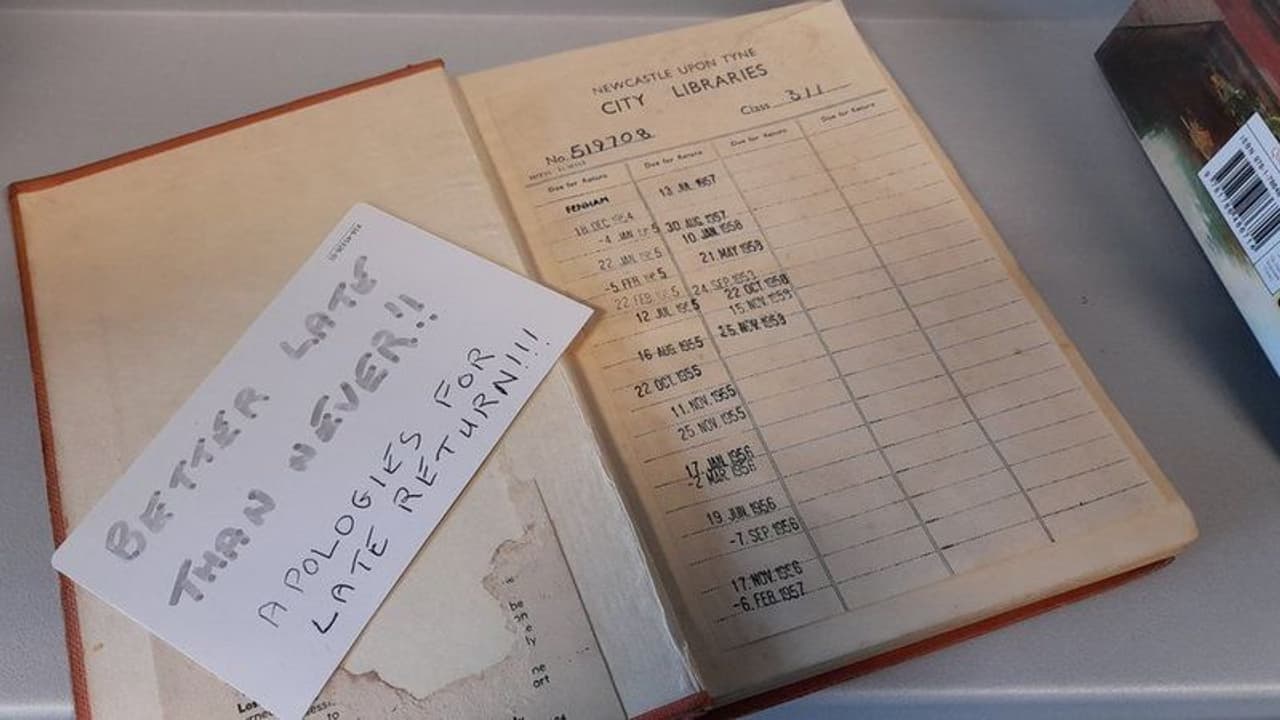 BETTER LATE
THAN NEVER!!
APOLOGIES FOR
LATE RETURN!!!
NEWCASTLE UPON TYNE
CITY LIBRARIES
Class 311
No. 519708
Due for Return
Due for Return
Due for Return
Due for Return
FENHAM
18 DEC 1954
-4 JAN 1955
22 JAN 1955
-5 FEB 1955
22 FEB 1955
12 JUL 1955
16 AUG 1955
22 OCT 1955
11. NOV. 1955
25 NOV 1955
17. JAN. 1956
-2 MAR. 1956
19 JUN. 1956
-7. SEP. 1956
17. NOV. 1956
-6. FEB. 1957
13 JUL 1957
30 AUG. 1957
10. JAN. 1958
21. MAY 1959
24. SEP. 1953
22 OCT. 1958
15. NOV. 1959
25. NOV. 1959
be
ly
ne
ort
to